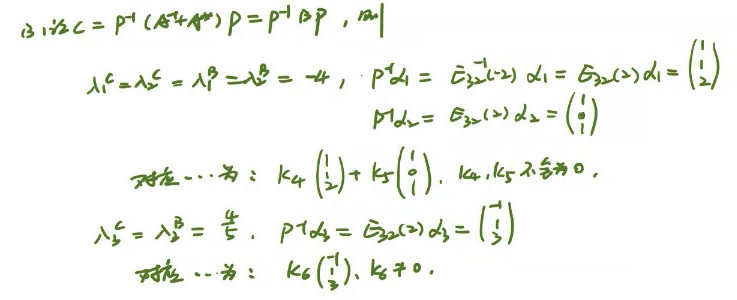 (3) 设 C = P⁻¹(A⁻¹+A*)P = P⁻¹BP, 则
λ₁ᶜ = λ₂ᶜ = λ₁ᴮ = λ₂ᴮ = -4, P⁻¹α₁ = E₃₂⁻¹(-2) α₁ = E₃₂(2) α₁ = (1 1 2)
P⁻¹α₂ = E₃₂(2) α₂ = (1 0 1)
对应…为: k₄(1 1 2) + k₅(1 0 1). k₄, k₅不全为0.
λ₃ᶜ = λ₃ᴮ = 4/5. P⁻¹α₃ = E₃₂(2) α₃ = (-1 1 3)
对应…为: k₆(-1 1 3). k₆ ≠ 0.